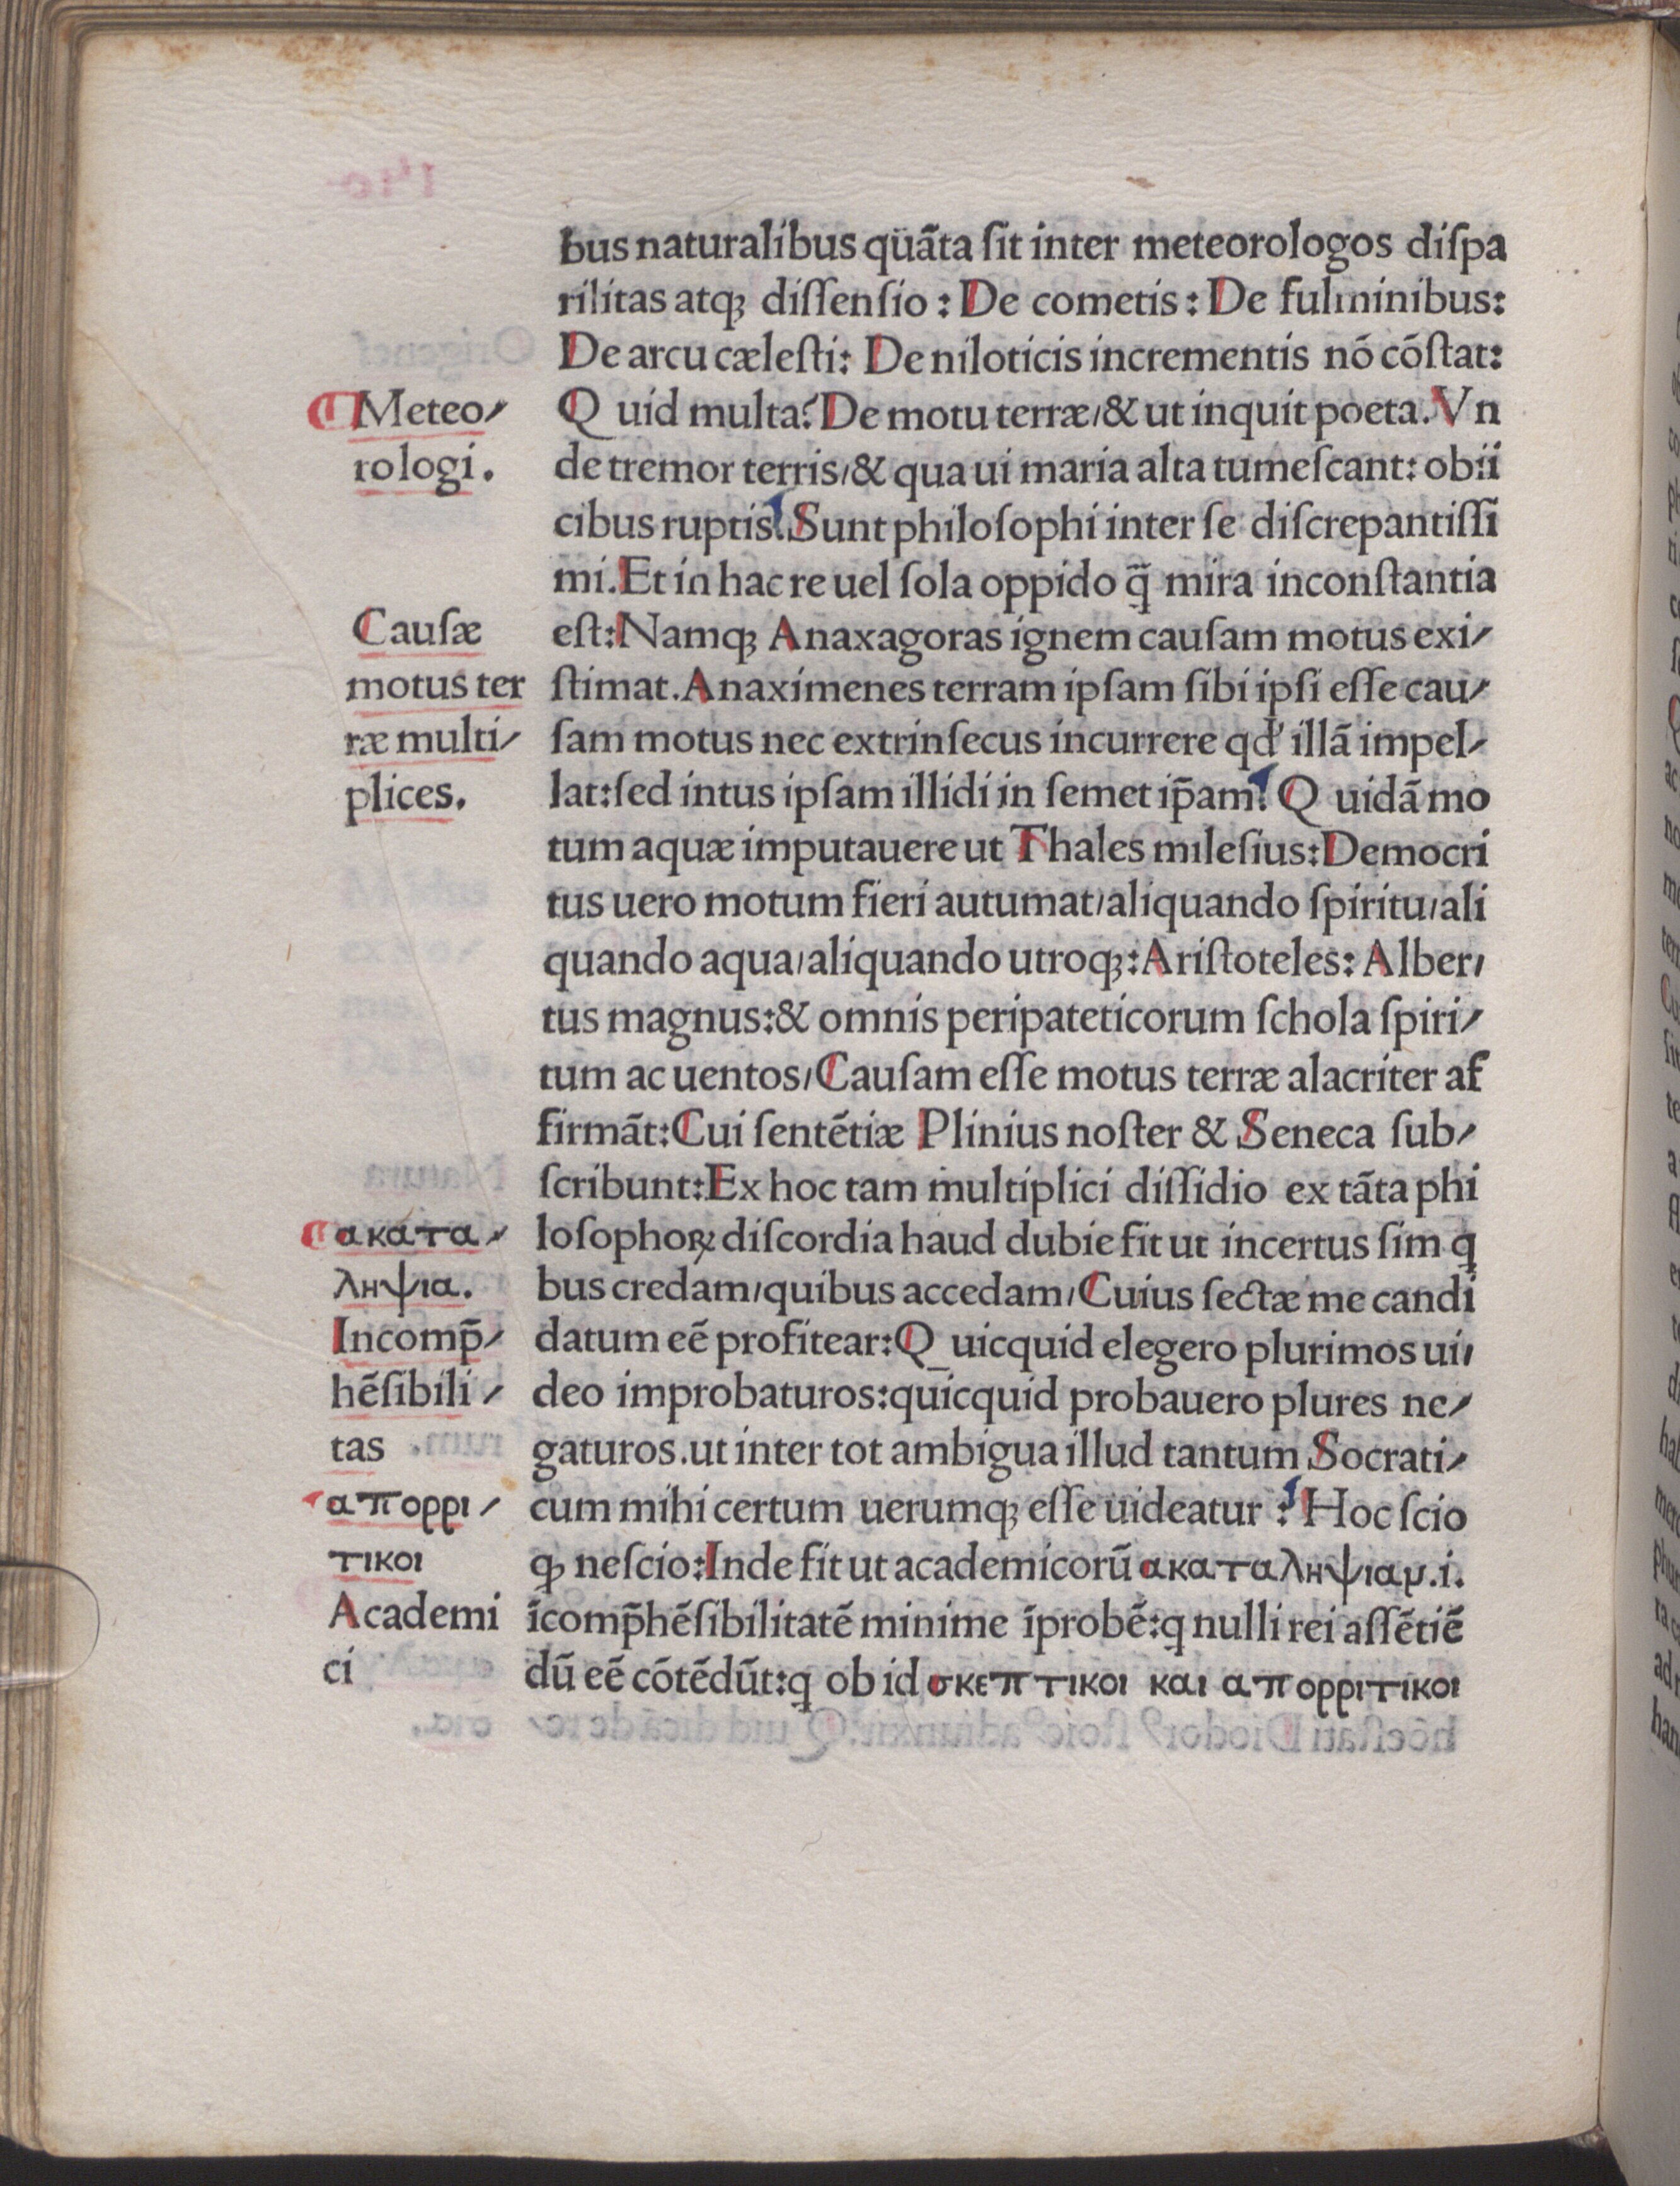 bus naturalibus quãta ſit inter meteorologos diſpa
rilitas atqꝫ diſſenſio : De cometis : De fulminibus:
De arcu cæleſti: De niloticis incrementis nõ cõſtat:
Q uid multa? De motu terræ/& ut inquit poeta. Vn
de tremor terris/& qua ui maria alta tumeſcant: obii
cibus ruptis. Sunt philoſophi inter ſe diſcrepantiſſi
mi. Et in hac re uel ſola oppido q̃ mira inconſtantia
eſt: Namqꝫ Anaxagoras ignem cauſam motus exi/
ſtimat. Anaximenes terram ipſam ſibi ipſi eſſe cau/
ſam motus nec extrinſecus incurrere qd' illã impel/
lat: ſed intus ipſam illidi in ſemet ip̃am: Q uidã mo
tum aquæ imputauere ut Thales mileſius: Democri
tus uero motum fieri autumat/aliquando ſpiritu/ali
quando aqua/aliquando utroqꝫ: Ariſtoteles: Alber/
tus magnus: & omnis peripateticorum ſchola ſpiri/
tum ac uentos/Cauſam eſſe motus terræ alacriter af
firmãt: Cui ſentẽtiæ Plinius noſter & Seneca ſub/
ſcribunt: Ex hoc tam multiplici diſſidio ex tãta phi
loſophoꝝ diſcordia haud dubie fit ut incertus ſim q̇
bus credam/quibus accedam/Cuius ſectæ me candi
datum eẽ profitear: Q uicquid elegero plurimos ui/
deo improbaturos: quicquid probauero plures ne/
gaturos. ut inter tot ambigua illud tantum Socrati/
cum mihi certum uerumqꝫ eſſe uideatur : Hoc ſcio
qꝫ neſcio: Inde fit ut academicorũ ακαταληψιαν.i.
ĩcomp̃hẽſibilitatẽ minime ĩprobẽ: q nulli rei aſſẽtiẽ
dũ eẽ cõtẽdũt: q ob id σκεπτικοι και απορριτικοι
Meteo/
rologi.
Cauſæ
motus ter
ræ multi/
plices.
ακατα/
ληψια.
Incomp̃/
hẽſibili/
tas
απορρι/
τικοι
Academi
ci